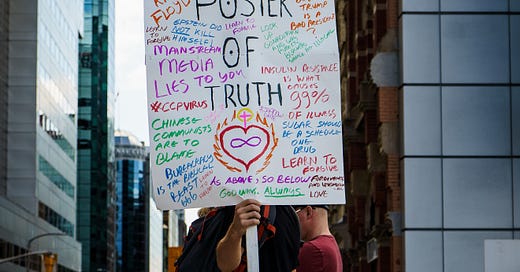 POSTER
OF
TRUTH
EPSTEIN DID
NOT KILL
HIMSELF!
LEARN TO
FORGIVE
MAINSTREAM
MEDIA
LIES TO YOU
#CCPVIRUS
CHINESE
COMMUNISTS
ARE TO
BLAME
BUREAUCRACY
IS THE BIBLICAL
BEAST
666
TRUMP IS A
INSULIN RESISTANCE
IS WHAT
CAUSES
99%
OF ILLNESS
SUGAR SHOULD
BE A SCHEDULE
ONE
DRUG
LEARN TO
FORGIVE
AS ABOVE, SO BELOW
GOD WINS. ALWAYS.
LOVE